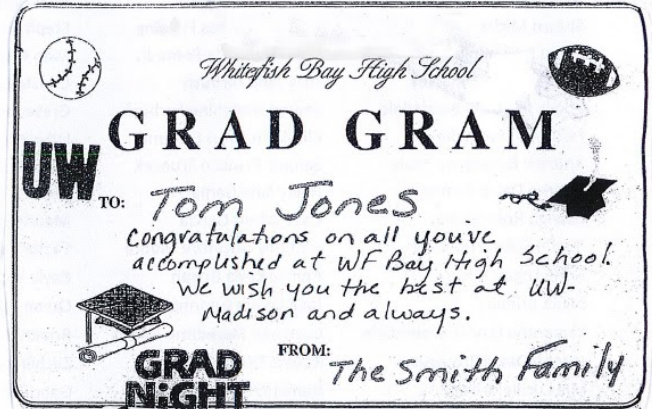 Whitefish Bay High School
GRAD GRAM
UW
TO: Tom Jones
Congratulations on all you've
accomplished at WF Bay High School.
We wish you the best at UW-
Madison and always.
GRAD
NiGHT
FROM: The Smith Family